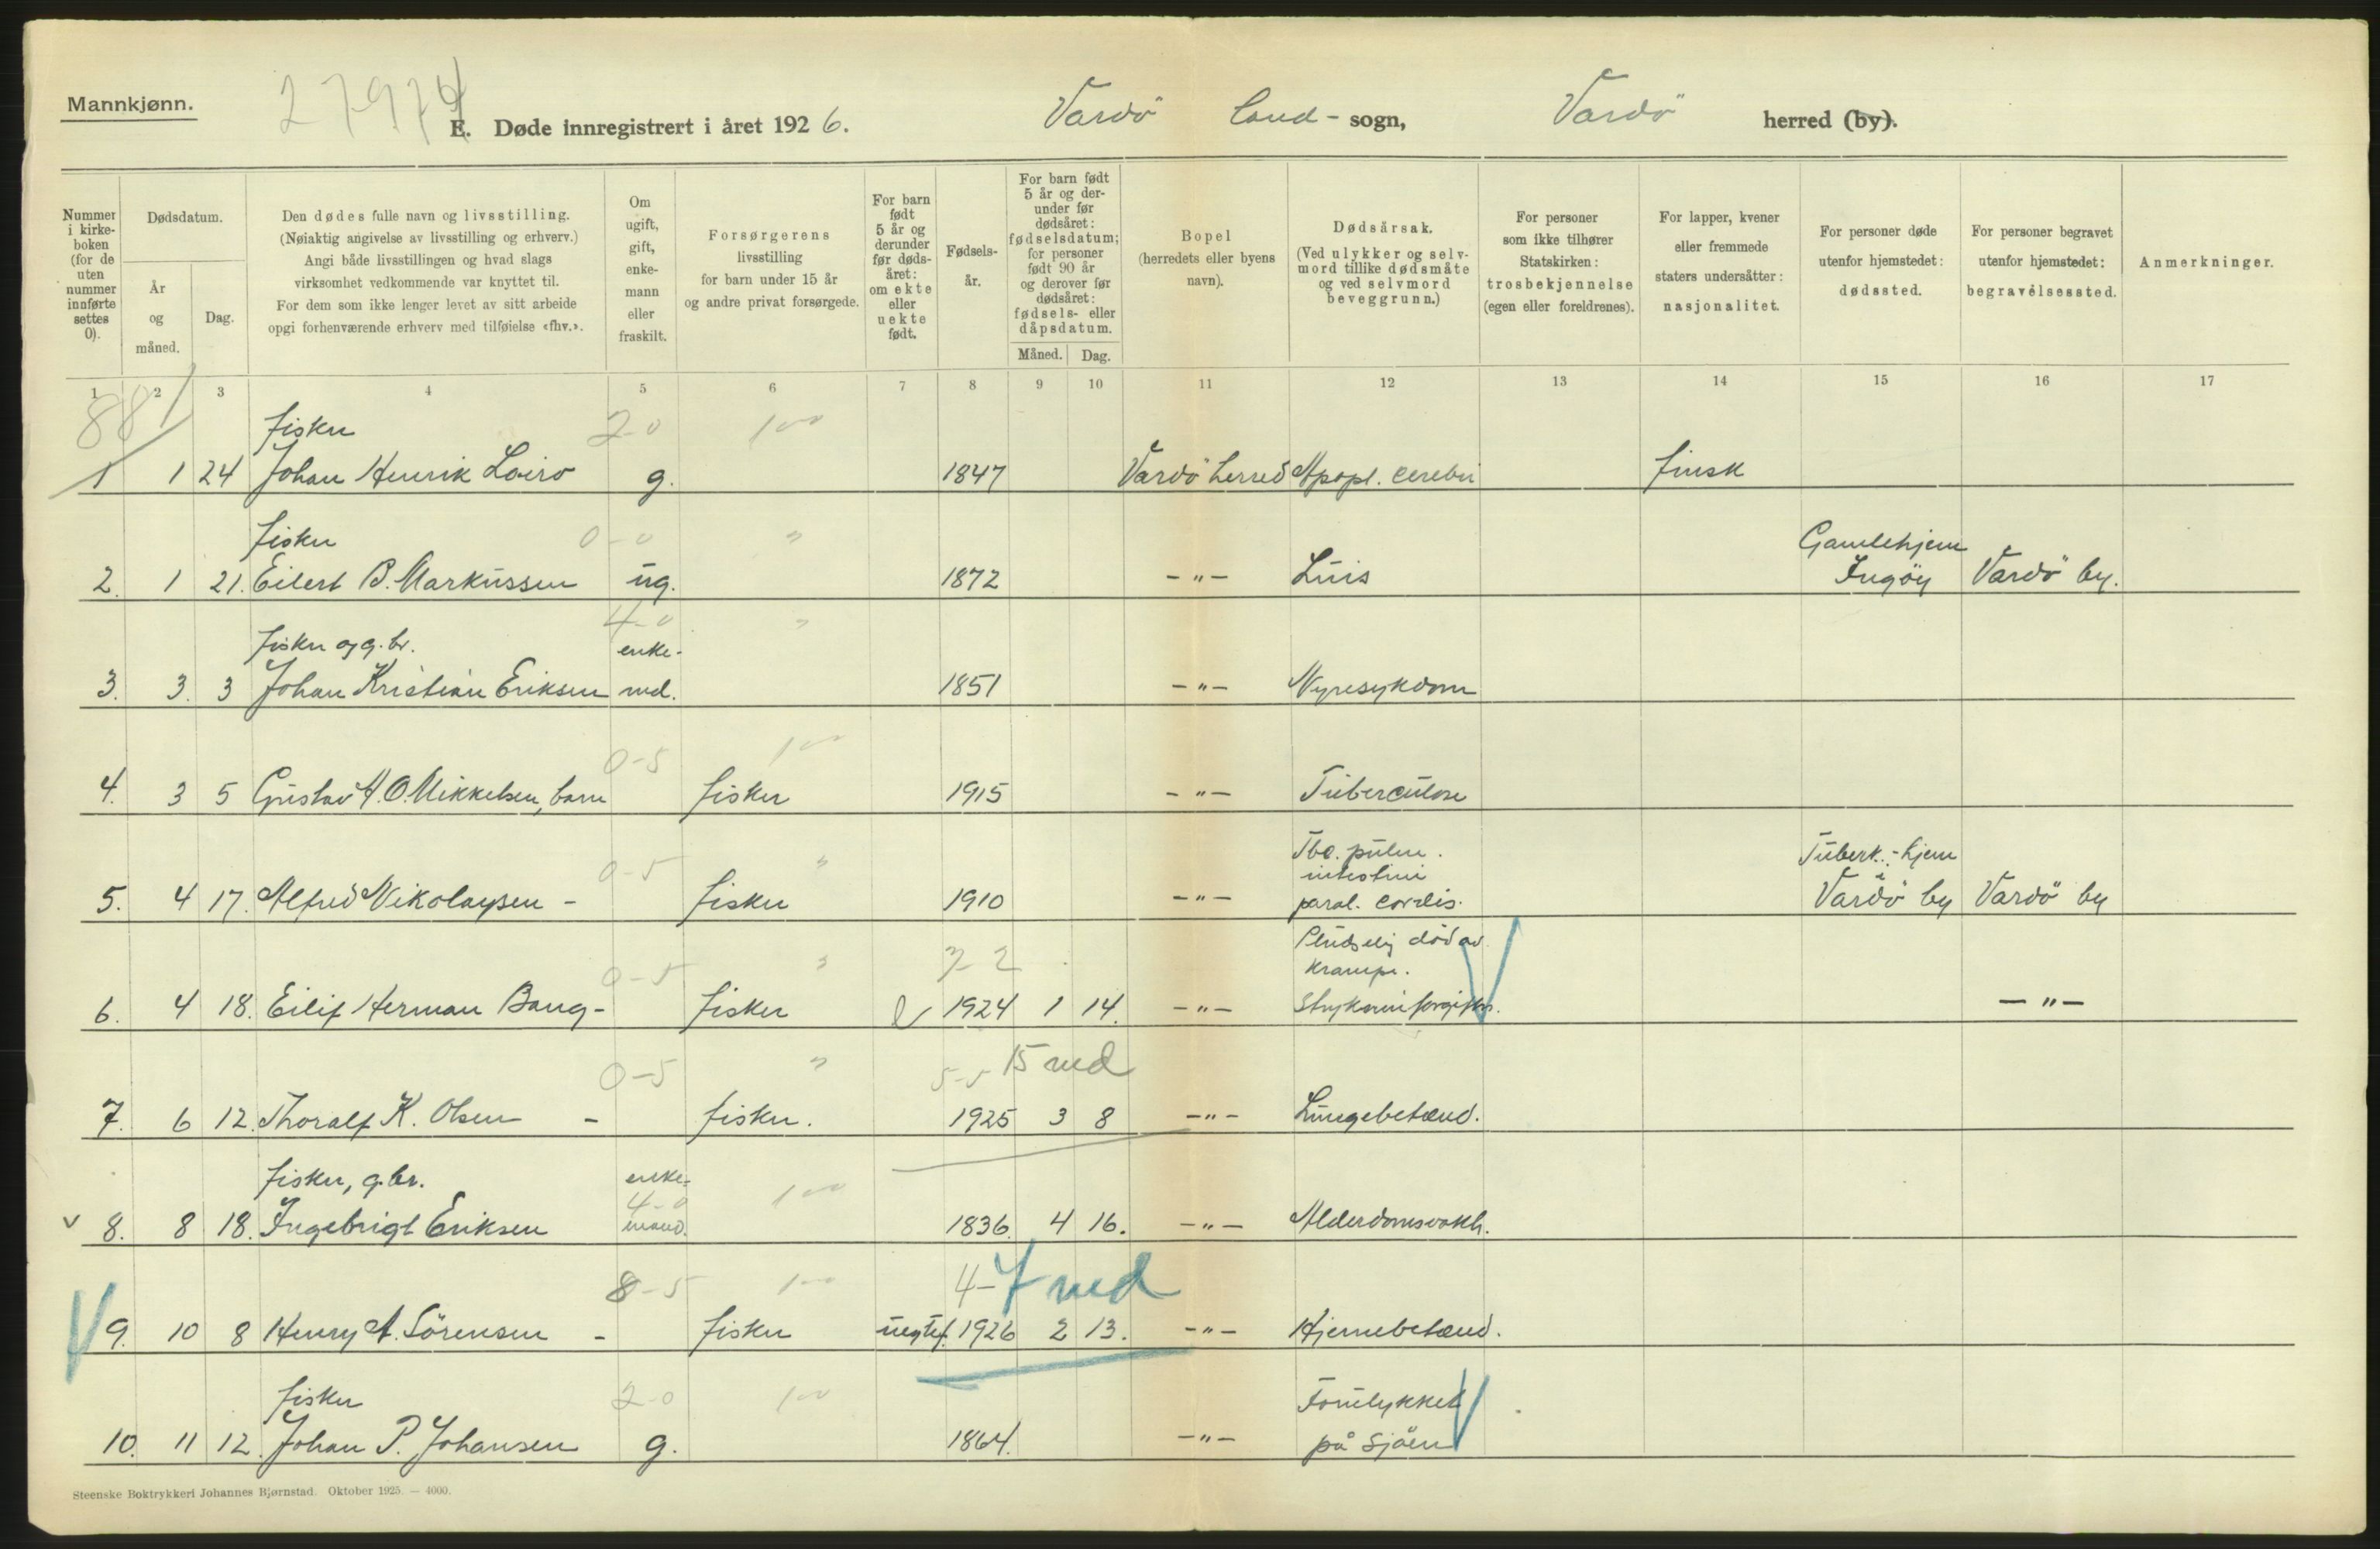 Mannkjønn.
27974
E. Døde innregistrert i året 1926. Vardö land - sogn, Vardö herred (by).
Nummer i kirke-boken (for de uten nummer innførte settes 0).
Dødsdatum.
År og måned.
Dag.
Den dødes fulle navn og livsstilling.
(Nøiaktig angivelse av livsstilling og erhverv.)
Angi både livsstillingen og hvad slags
virksomhet vedkommende var knyttet til.
For dem som ikke lenger levet av sitt arbeide
opgi forhenværende erhverv med tilføielse «fhv.».
Om ugift, gift, enke-mann eller fraskilt.
Forsørgerens
livsstilling
for barn under 15 år
og andre privat forsørgede.
For barn født 5 år og derunder før døds-året: om ekte eller uekte født.
Fødsels-år.
For barn født 5 år og der-under før dødsåret: fødselsdatum; for personer født 90 år og derover før dødsåret: fødsels- eller dåpsdatum.
Måned. Dag.
Bopel
(herredets eller byens
navn).
Dødsårsak.
(Ved ulykker og selv-
mord tillike dødsmåte
og ved selvmord
beveggrunn.)
For personer
som ikke tilhører
Statskirken:
trosbekjennelse
(egen eller foreldrenes).
For lapper, kvener
eller fremmede
staters undersåtter:
nasjonalitet.
For personer døde
utenfor hjemstedet:
dødssted.
For personer begravet
utenfor hjemstedet:
begravelsessted.
Anmerkninger.
1 2 3 4 5 6 7 8 9 10 11 12 13 14 15 16 17
881
fisker 2-0 100
1 1 24 Johan Henrik Loiro g. 1847 Vardö herred Apopl. cerebri finsk
fisker 0-0 " Gamlehjem
2. 1 21. Eilert B. Markussen ug. 1872 -"- Luis Ingöy Vardö by.
4-0 "
fisker og g.br. enke-
3. 3. 3 Johan Kristian Eriksen md. 1851 -"- Nyresykdom
0-5 100
4. 3 5 Gustav A. O. Mikkelsen, barn fisker 1915 -"- Tuberculose
Tbc. pulm. Tuberk.-hjem
0-5 " intestini i
5. 4 17. Alfred Nikolaysen - fisker 1910 -"- paral. cordis. Vardö by Vardö by
Pludselig död av
0-5 " 7-2 krampe.
6. 4 18. Eilif Herman Bang - fisker e 1924 1 14. -"- Strykninforgiftn. -"-
0-5 " 5-5 15 md
7. 6 12. Thoralf K. Olsen - fisker. 1925 3 8 -"- Lungebetænd.
fisker, g.br. enke-
4-0 100
8. 8 18. Ingebrigt Eriksen mand. 1836. 4 16. -"- Alderdomssvakh.
8-5 100 4- 7 md
9. 10 8 Henry A. Sörensen - fisker uegtef. 1926 2 13. -"- Hjernebetænd.
fisker 2-0 100 Forulykket
10. 11 12. Johan P. Johansen g. 1864. -"- på sjöen
Steenske Boktrykkeri Johannes Bjørnstad. Oktober 1925. — 4000.